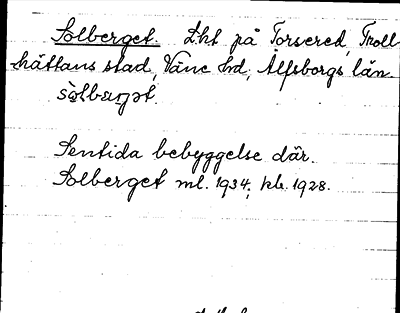 Solberget. Lht på Torsered, Troll-
hättans stad, Väne hd, Älfsborgs län.
Sentida bebyggelse där.
Solberget ml. 1934, kb. 1928.